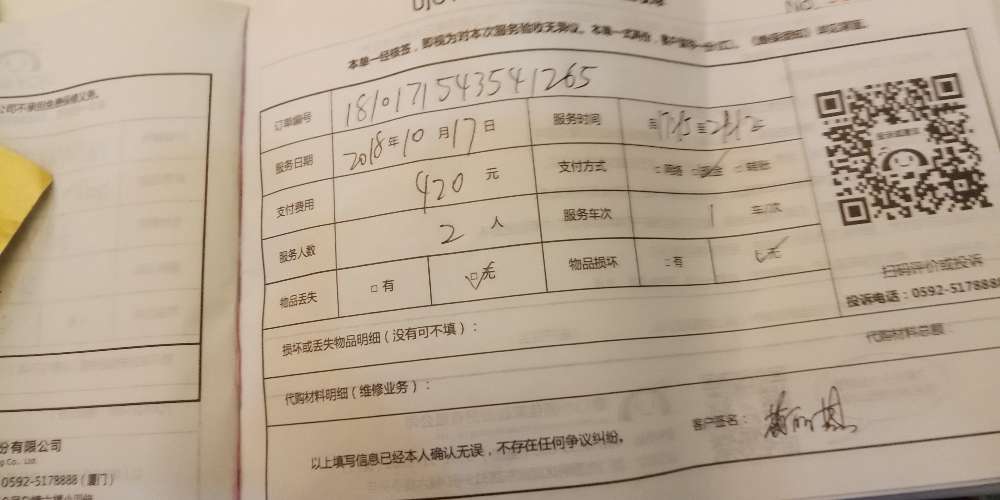 No.
本单一经核签，即视为对本次服务验收无异议。本单一式两份，客户留存一份
公司不承担免费保修义务。
订单编号 181017154354 1265
服务日期 2018年10月17日 服务时间
支付费用 420 元 支付方式 □网络 □现金 □转账
服务人数 2 人 服务车次 1 车/次
物品丢失 □有 □无 物品损坏 □有 □无
扫码评价或投诉
投诉电话：0592-5178888
损坏或丢失物品明细（没有可不填）：
代购材料明细（维修业务）： 代购材料总额：
客户签名：
以上填写信息已经本人确认无误，不存在任何争议纠纷。
份有限公司
ng Co., Ltd.
0592-5178888（厦门）